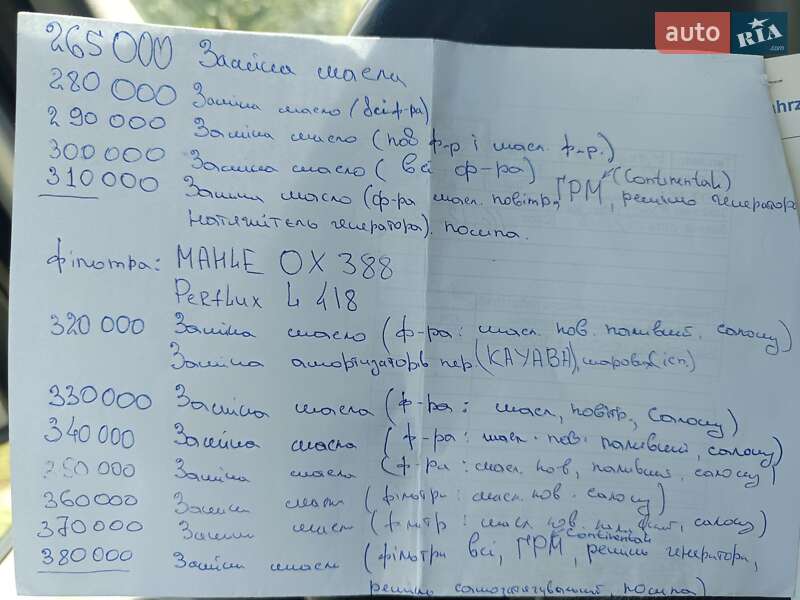 auto RIA .com
ahrz
265000 Заміна масла
280 000 Заміна масло (всі ф-ра)
290000 Заміна масло (пов ф-р і масл. ф-р.)
300000 Заміна масло (всі ф-ра)
(Continental)
310000 Заміна масло (ф-ра масл. повітр, ГРМ, ремінь генератора
натяжітель генератора). помпа.
фільтра: MAHLE OX 388
Perflux L 418
320 000 Заміна масло (ф-ра: масл. пов. паливний, салону)
Заміна амортизаторів пер. (KAYABA), шарових(ісп.)
330000 Заміна масла (ф-ра: масл, повітр., салону)
340000 Заміна масла (ф-ра: масл. пов. паливний, салону)
350000 Заміна масла (ф-ра: масл. пов, паливний, салону)
360000 Заміна масла (фільтри: масл. пов. салону)
370000 Заміна масла (фільтр: масл. пов. салону)
Continental
380000 Заміна масла (фільтри всі, ГРМ, ремінь генератора,
ремінь помпа)